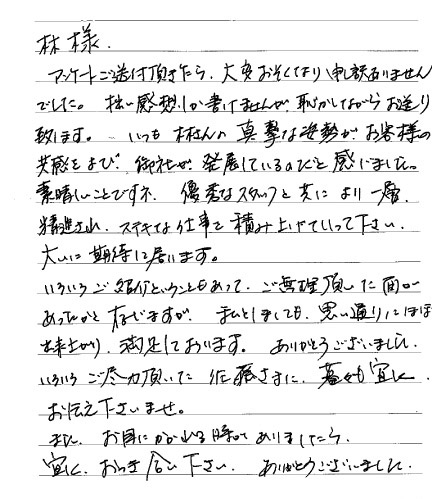 林様.
アンケートご送付頂きたら、大変おそくなり申訳ありません
でした。拙い感想しか書けませんが、恥かしながらお送り
致します。いつも林さんの真摯な姿勢がお客様の
共感をよび、御社が発展しているのだと感じました。
素晴しいことですネ、優秀なスタッフと共により一層、
精進され、ステキな仕事を積み上げていって下さい。
大いに期待して居ります。
いろいろご紹介ということもあって、ご無理頂いた面が
あったかと存じますが、私としましても、思い通りにほぼ
出来上がり、満足しております。ありがとうございました。
いろいろご尽力頂いた佐藤さまに、宜しく
お伝え下さいませ。
また、お目にかかれる時がありましたら、
宜しく、おつき合い下さい。ありがとうございました。